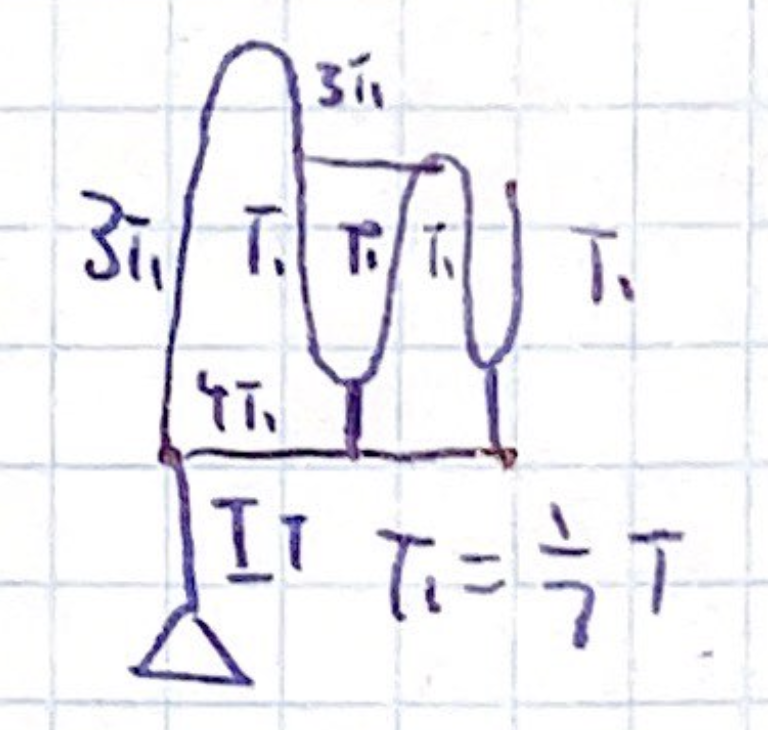 3T₁
3T₁ T₁ T₁ T₁ T₁
4T₁
T T T₁ = 1/7 T